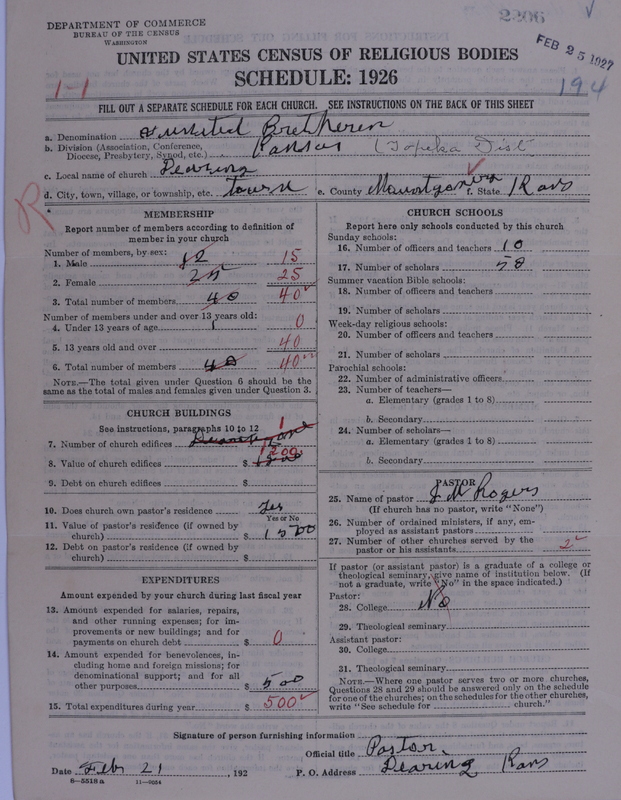 2206
DEPARTMENT OF COMMERCE
BUREAU OF THE CENSUS
WASHINGTON
FEB 25 1927
UNITED STATES CENSUS OF RELIGIOUS BODIES
SCHEDULE: 1926
1-1
194
FILL OUT A SEPARATE SCHEDULE FOR EACH CHURCH. SEE INSTRUCTIONS ON THE BACK OF THIS SHEET
a. Denomination United Bretheren
b. Division (Association, Conference, Diocese, Presbytery, Synod, etc.) Kansas (Topeka Dist
c. Local name of church Dearing
d. City, town, village, or township, etc. town e. County f. State Kans
R
MEMBERSHIP
Report number of members according to definition of
member in your church
Number of members, by sex:
1. Male 12 15
2. Female 25 25
3. Total number of members 40 40
Number of members under and over 13 years old:
4. Under 13 years of age 0
5. 13 years old and over 40
6. Total number of members 40 40
NOTE.—The total given under Question 6 should be the
same as the total of males and females given under Question 3.
CHURCH BUILDINGS
See instructions, paragraphs 10 to 12
7. Number of church edifices 1
8. Value of church edifices $ 1200
9. Debt on church edifices $
10. Does church own pastor's residence Yes
Yes or No
11. Value of pastor's residence (if owned by
church) $ 1500
12. Debt on pastor's residence (if owned by
church) $
EXPENDITURES
Amount expended by your church during last fiscal year
13. Amount expended for salaries, repairs,
and other running expenses; for im-
provements or new buildings; and for
payments on church debt $ 0
14. Amount expended for benevolences, in-
cluding home and foreign missions; for
denominational support; and for all
other purposes $ 500
15. Total expenditures during year $ 500
CHURCH SCHOOLS
Report here only schools conducted by this church
Sunday schools:
16. Number of officers and teachers 10
17. Number of scholars 58
Summer vacation Bible schools:
18. Number of officers and teachers
19. Number of scholars
Week-day religious schools:
20. Number of officers and teachers
21. Number of scholars
Parochial schools:
22. Number of administrative officers
23. Number of teachers—
a. Elementary (grades 1 to 8)
b. Secondary
24. Number of scholars—
a. Elementary (grades 1 to 8)
b. Secondary
PASTOR
25. Name of pastor J M Rogers
(If church has no pastor, write "None")
26. Number of ordained ministers, if any, em-
ployed as assistant pastors
27. Number of other churches served by the
pastor or his assistants 2
If pastor (or assistant pastor) is a graduate of a college or
theological seminary, give name of institution below. (If
not a graduate, write "No" in the space indicated.)
Pastor:
28. College No
29. Theological seminary
Assistant pastor:
30. College
31. Theological seminary
NOTE.—Where one pastor serves two or more churches,
Questions 28 and 29 should be answered only on the schedule
for one of the churches; on the schedules for the other churches,
write "See schedule for church."
Signature of person furnishing information
Official title Pastor
Date Feb 21, 192 P. O. Address Dearing Kans
8-5518 a 11-9054